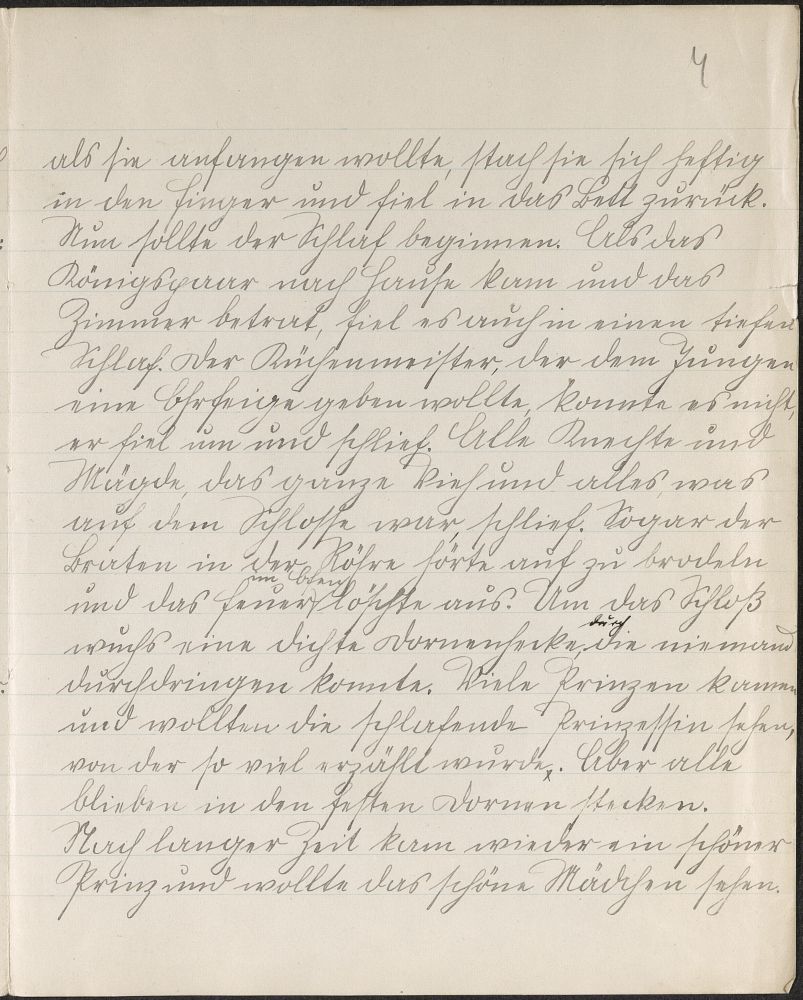 4
als sie anfangen wollte, stach sie sich heftig
in den Finger und fiel in das Bett zurück.
Nun sollte der Schlaf beginnen. Als das
Königspaar nach Hause kam und das
Zimmer betrat, fiel es auch in einen tiefen
Schlaf. Der Küchenmeister, der dem Jungen
eine Ohrfeige geben wollte, konnte es nicht,
er fiel um und schlief. Alle Knechte und
Mägde, das ganze Vieh und alles, was
auf dem Schlosse war, schlief. Sogar der
Braten in der Röhre hörte auf zu brodeln
im Ofen
und das Feuer löschte aus. Um das Schloß
durch
wuchs eine dichte Dornenhecke, die niemand
durchdringen konnte. Viele Prinzen kamen
und wollten die schlafende Prinzessin sehen,
von der so viel erzählt wurde. Aber alle
blieben in den festen Dornen stecken.
Nach langer Zeit kam wieder ein schöner
Prinz und wollte das schöne Mädchen sehen.